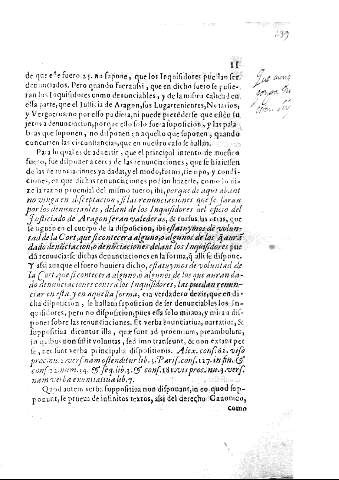 11
de que este fuero 25. no supone, que los Inquisidores puedan ser
denunciados. Pero quando fuera assi, que en dicho fuero se pusie-
ran los Inquisidores como denunciables, y de la misma calidad en
esta parte, que el Iusticia de Aragon, sus Lugartenientes, Notarios,
y Vergueros: no por esso pudiera, ni puede pretenderse que esten su-
jetos a denunciacion, porque esto solo fue a suposicion, y las pala-
bras que suponen, no disponen en aquello que suponen, quando
concurren las circunstancias, que en nuestro caso se hallan.
Para lo qual es de advertir, que el principal intento de nuestro
fuero, fue disponer a cerca de las renunciaciones, que se hiziessen
de las denunciaciones ya dadas, y el modo, forma, tiempo, y condi-
ciones, en que dichas renunciaciones podian hazerse, como lo di-
ze la razon proemial del mismo fuero, ibi, porque de aqui abant
no venga en disceptacion, si las renunciaciones que se faran
por los denunciantes, delant de los Inquisidores del oficio del
Iusticiado de Aragon seran valederas, &
se siguen en el cuerpo de la disposicion, ibi estatuymos de volun-
tad de la Cort, que si contecera alguno, o algunos de los que auran
dado denunciacion, o denunciaciones delant los Inquisidores pue-
da renunciar sus dichas denunciaciones en la forma, que alli dispone.
Y assi aunque el fuero huviera dicho, estatuymos de voluntad de
la Cort, que si contecera alguno, o algunos de los que auran da-
do denunciaciones contra los Inquisidores, las puedan renun-
ciar en esta, y en aquella forma, era verdadero dezir, que en di-
cha disposicion, se hallan suposicion de ser denunciables los In-
quisidores, pero no disposicion, pues esta solo miraua, y mira a dis-
poner sobre las renunciaciones. Et verba enuntiatiua, narratiua, &
suppositiua dicuntur illa, quæ sunt ad proemium, preambulum,
in quibus non sistit voluntas, sed imo transeunt, & non extant per
se, nec sunt verba principalis dispositionis. Alex. cons. 42. viso
pro. nu. 2. vers. nam ostenditur lib. 5. Paris. cons. 127. in fin. &
cons. 12. num. 14. & seq. lib. 3. & cons. 181. vis pro. nu. 3. vers.
nam verba enuntiatiua lib. 7.
Quod autem verba suppositiua non disponant, in eo quod sup-
ponunt, se prueua de infinitos textos, assi del derecho Canonico,
como